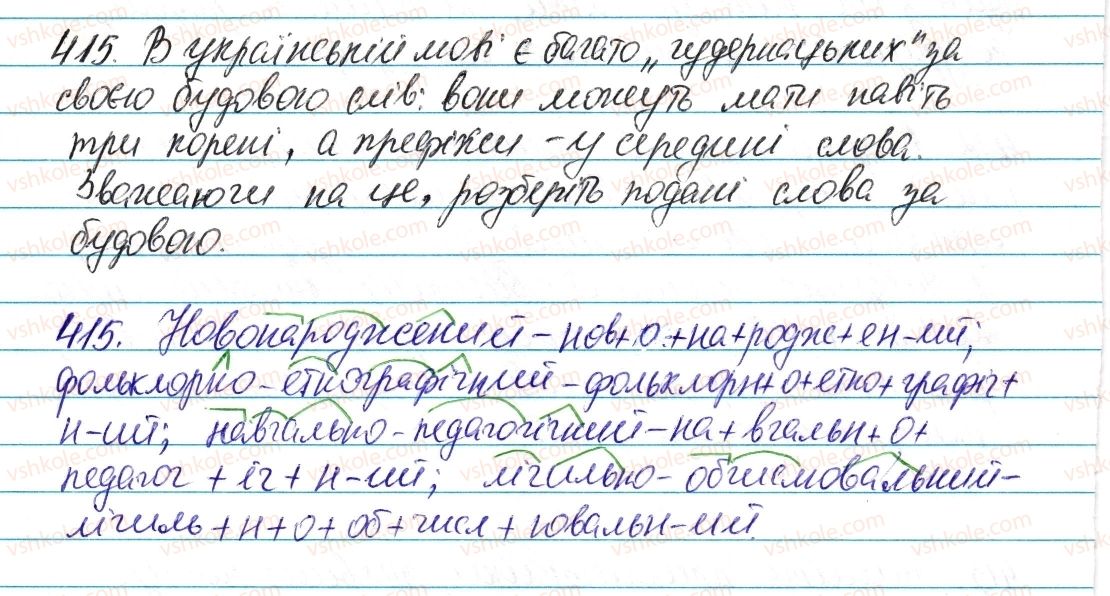 415. В українській мові є багато „чудернацьких" за
своєю будовою слів: вони можуть мати навіть
три корені, а префікси - у середині слова.
Зважаючи на це, розберіть подані слова за
будовою.
415. Новонароджений - нов+о+на+родж+ен-ий;
фольклорно-етнографічний - фольклорн+о+етно+графіч+
н-ий; навчально-педагогічний - на+вчальн+о+
педагог+іч+н-ий; лічильно-обчислювальний -
лічиль+н+о+об+числ+ювальн-ий.